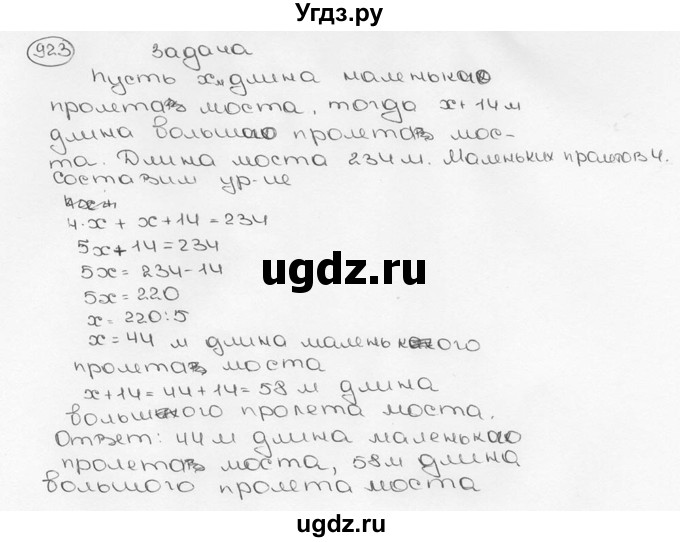 Угдз.ру
923 Задача
Пусть x м длина маленького
пролета моста, тогда x+14 м
длина большого пролета мос-
та. Длина моста 234 м. Маленьких пролетов 4.
Составим ур-ие
4·x + x + 14 = 234
5x + 14 = 234
5x = 234 - 14
5x = 220
x = 220:5
x = 44 м длина маленького
пролета моста
x + 14 = 44 + 14 = 58 м длина
большого пролета моста.
Ответ: 44 м длина маленького
пролета моста, 58 м длина
большого пролета моста
ugdz.ru
ugdz.ru